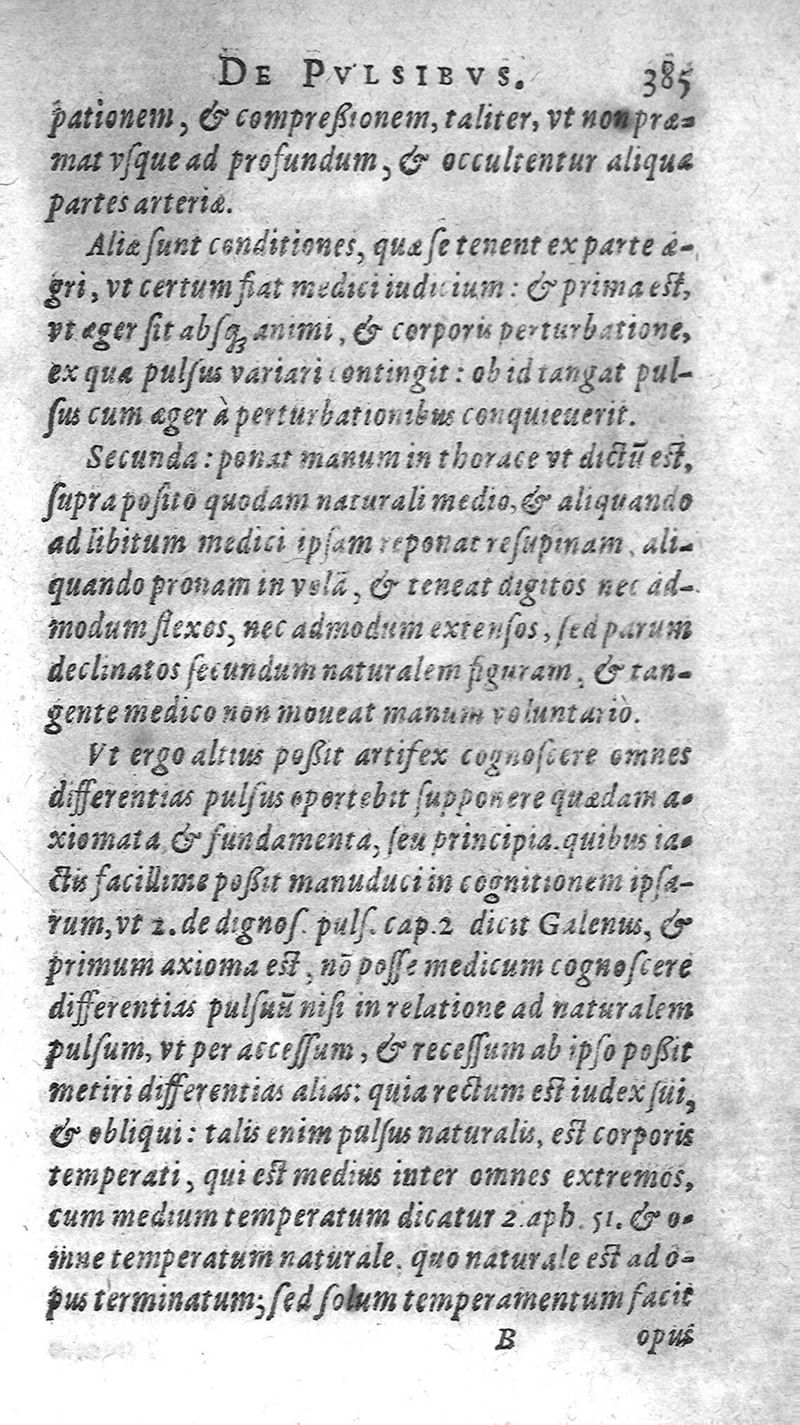 DE PVLSIBVS. 385
pationem, & compreßionem, taliter, vt non præ-
mat vſque ad profundum, & occultentur aliquæ
partes arteriæ.
Aliæ ſunt conditiones, quæ ſe tenent ex parte æ-
gri, vt certum fiat medici iudicium: & prima eſt,
vt æger ſit abſqꝫ animi, & corporis perturbatione,
ex qua pulſus variari contingit: ob id tangat pul-
ſus cum æger à perturbationibus conquieuerit.
Secunda: ponat manum in thorace vt dictũ eſt,
ſupra poſito quodam naturali medio, & aliquando
ad libitum medici ipſam reponat reſupinam, ali-
quando pronam in volã, & teneat digitos nec ad-
modum flexos, nec admodum extenſos, ſed parum
declinatos ſecundum naturalem figuram, & tan-
gente medico non moueat manum voluntariò.
Vt ergo altius poßit artifex cognoſcere omnes
differentias pulſus oportebit ſupponere quædam a-
xiomata & fundamenta, ſeu principia. quibus ia-
ctis facillime poßit manuduci in cognitionem ipſa-
rum, vt 2. de dignoſ. pulſ. cap. 2 dicit Galenus, &
primum axioma eſt, nõ poſſe medicum cognoſcere
differentias pulſuũ niſi in relatione ad naturalem
pulſum, vt per acceſſum, & receſſum ab ipſo poßit
metiri differentias alias: quia rectum eſt iudex ſui,
& obliqui: talis enim pulſus naturalis, eſt corporis
temperati, qui eſt medius inter omnes extremos,
cum medium temperatum dicatur 2. aph. 51. & o-
mne temperatum naturale. quo naturale eſt ad o-
pus terminatum; ſed ſolum temperamentum facit
B opus